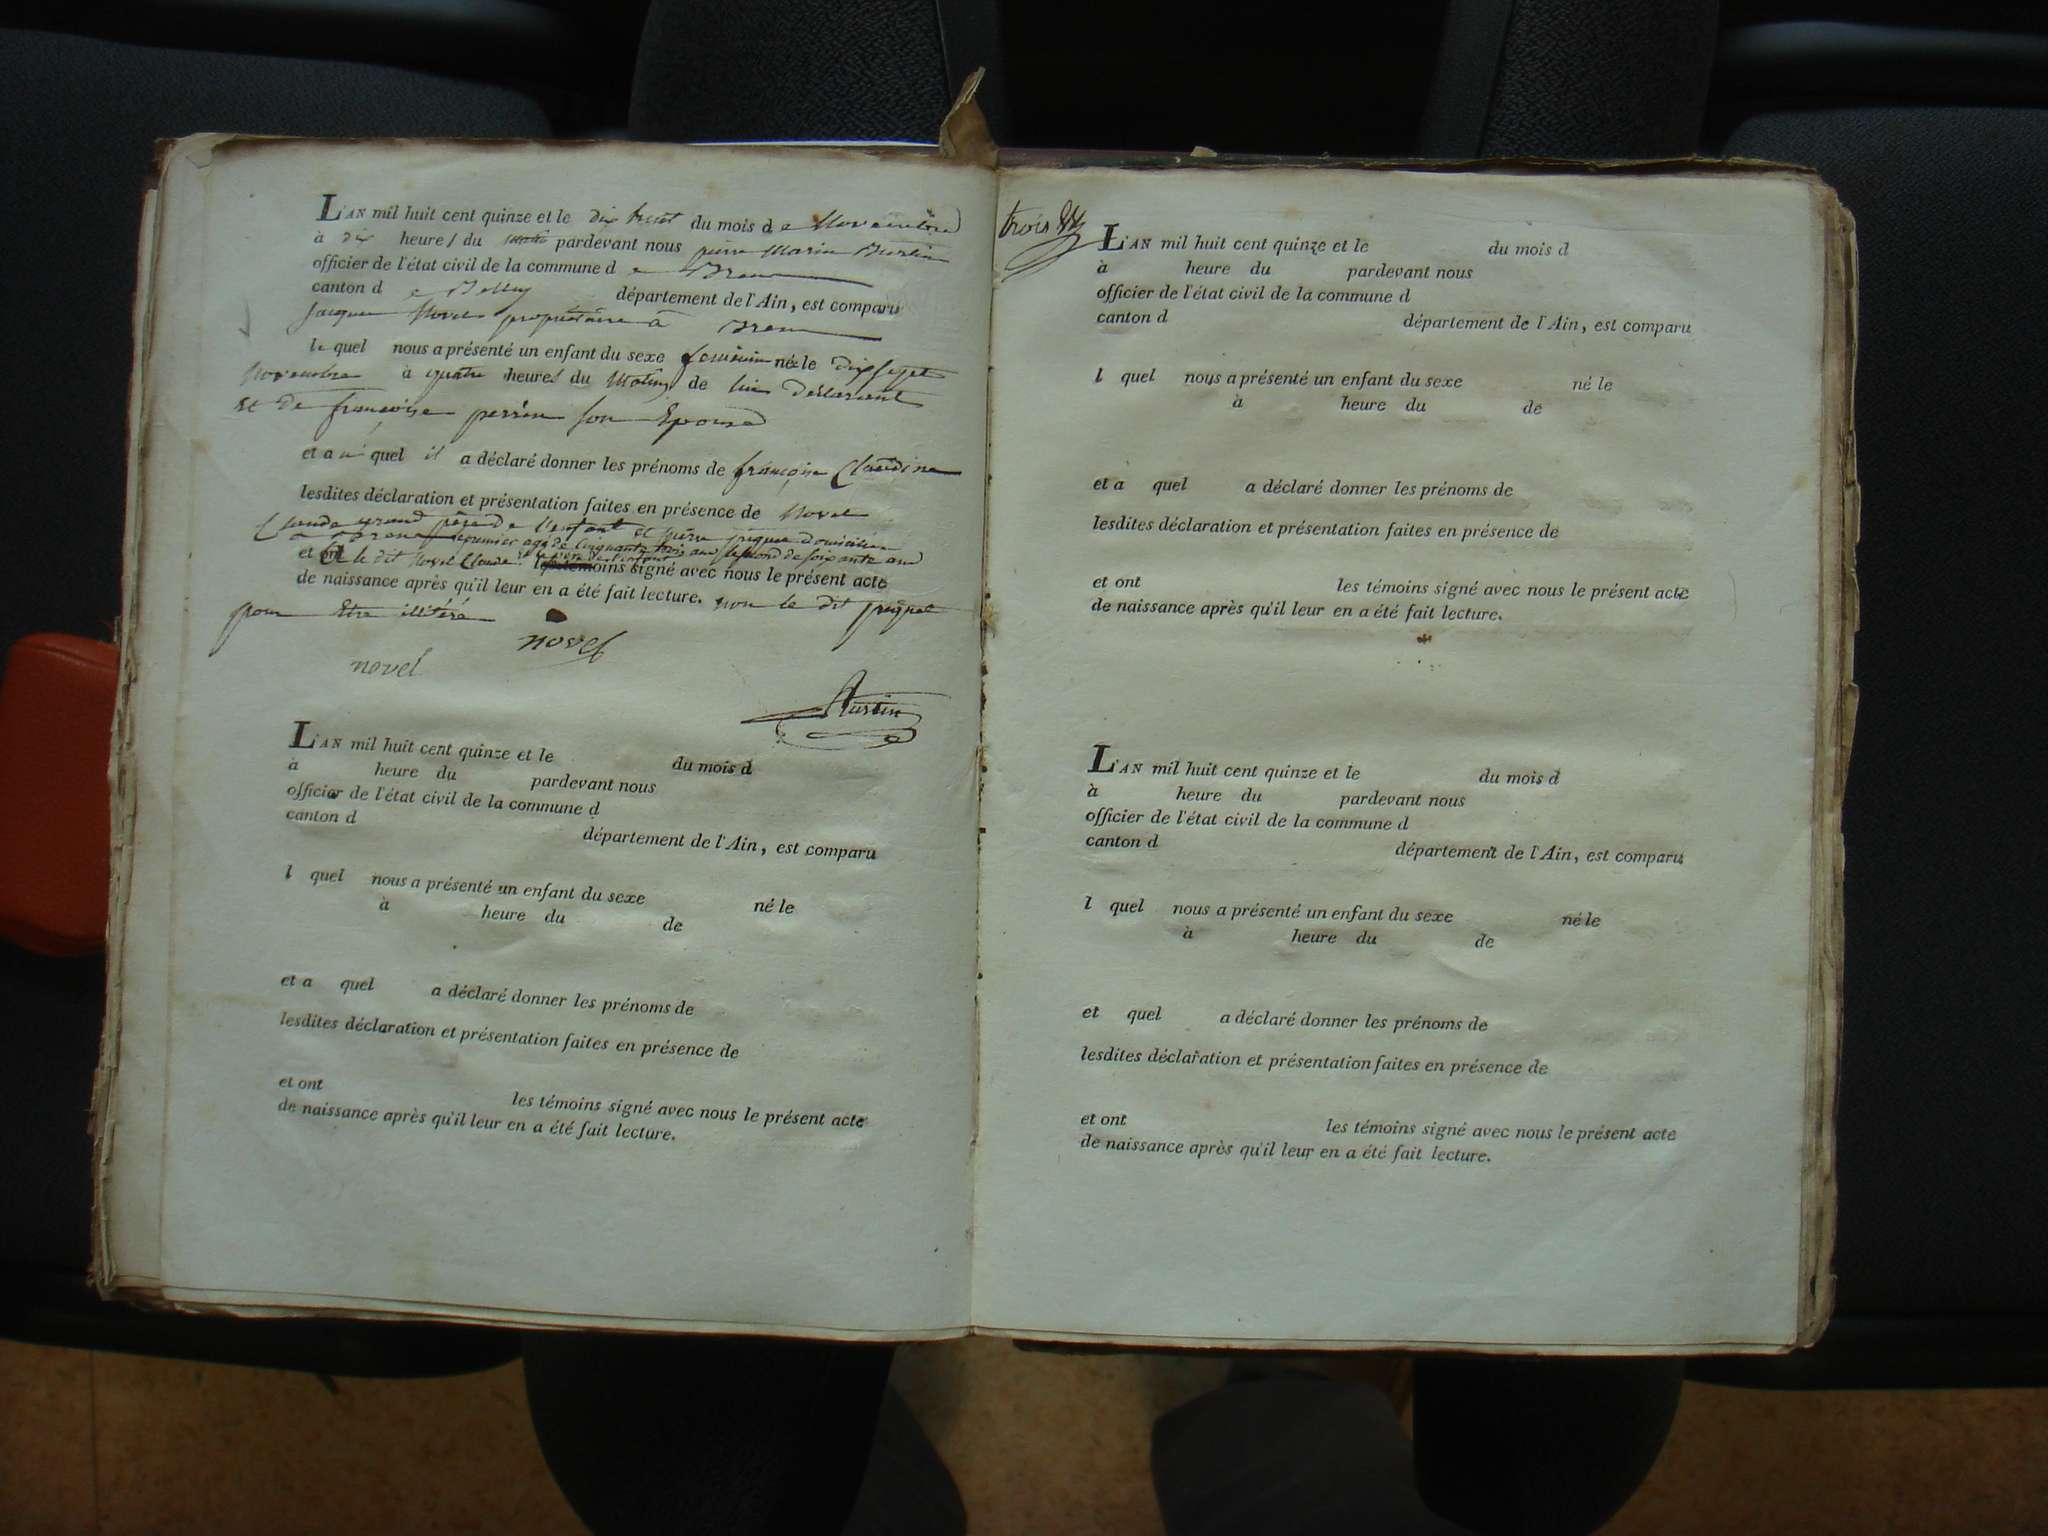 L'AN mil huit cent quinze et le dix huit du mois de Novembre
à dix heures du matin pardevant nous pierre Marin
officier de l'état civil de la commune de
canton de Belley département de l'Ain, est comparu
Jacques Novel propriétaire à
le quel nous a présenté un enfant du sexe féminin née le dix sept
Novembre à quatre heures du Matin de lui déclarant
et de françoise perrin son Epouse
et au quel il a déclaré donner les prénoms de françoise Claudine
lesdites déclaration et présentation faites en présence de Novel
Claude grand père de l'enfant et pierre domicilies
premier agé de cinquante trois ans second de soixante ans
et ont le dit Novel Claude et le père de l'enfant les témoins signé avec nous le présent acte
de naissance après qu'il leur en a été fait lecture. non le dit
pour Etre illitéré
novel
novel
L'AN mil huit cent quinze et le du mois d
à heure du pardevant nous
officier de l'état civil de la commune d
canton d département de l'Ain, est comparu
l quel nous a présenté un enfant du sexe né le
à heure du de
et a quel a déclaré donner les prénoms de
lesdites déclaration et présentation faites en présence de
et ont les témoins signé avec nous le présent acte
de naissance après qu'il leur en a été fait lecture.
trois
L'AN mil huit cent quinze et le du mois d
à heure du pardevant nous
officier de l'état civil de la commune d
canton d département de l'Ain, est comparu
l quel nous a présenté un enfant du sexe né le
à heure du de
et a quel a déclaré donner les prénoms de
lesdites déclaration et présentation faites en présence de
et ont les témoins signé avec nous le présent acte
de naissance après qu'il leur en a été fait lecture.
L'AN mil huit cent quinze et le du mois d
à heure du pardevant nous
officier de l'état civil de la commune d
canton d département de l'Ain, est comparu
l quel nous a présenté un enfant du sexe né le
à heure du de
et quel a déclaré donner les prénoms de
lesdites déclaration et présentation faites en présence de
et ont les témoins signé avec nous le présent acte
de naissance après qu'il leur en a été fait lecture.